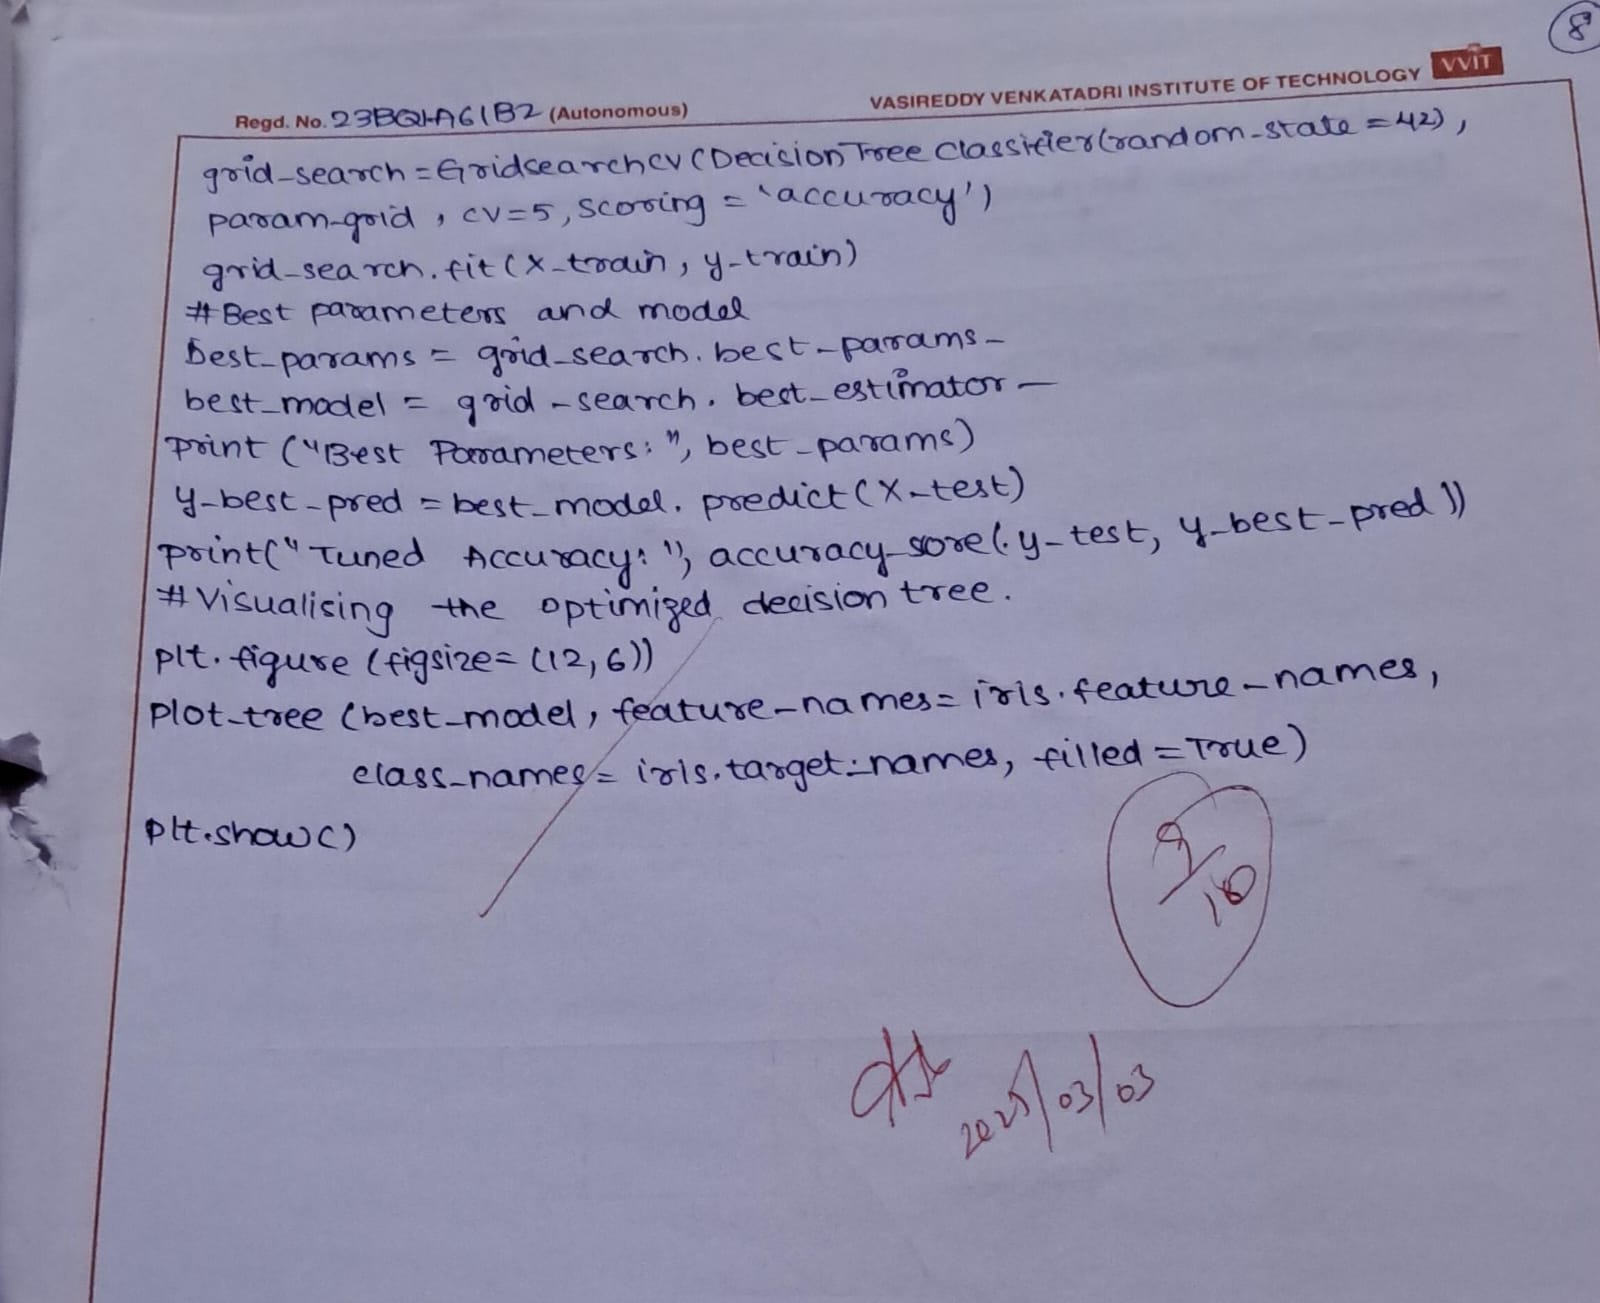 8
VASIREDDY VENKATADRI INSTITUTE OF TECHNOLOGY VVIT
Regd. No. 23BQ1A61B2 (Autonomous)
grid_search = Gridsearchcv (Decision Tree Classifier(random_state = 42),
param_grid, cv=5, scoring = 'accuracy')
grid_search.fit(X_train, y_train)
# Best parameters and model
best_params = grid_search.best_params_
best_model = grid_search.best_estimator_
print ("Best Parameters:", best_params)
y_best_pred = best_model.predict(X_test)
print("Tuned Accuracy:", accuracy_sore(y_test, y_best_pred))
# Visualising the optimized decision tree.
plt.figure (figsize= (12,6))
plot_tree (best_model, feature_names= iris.feature_names,
class_names= iris.target_names, filled = True)
plt.show()
9/10
2025/03/03